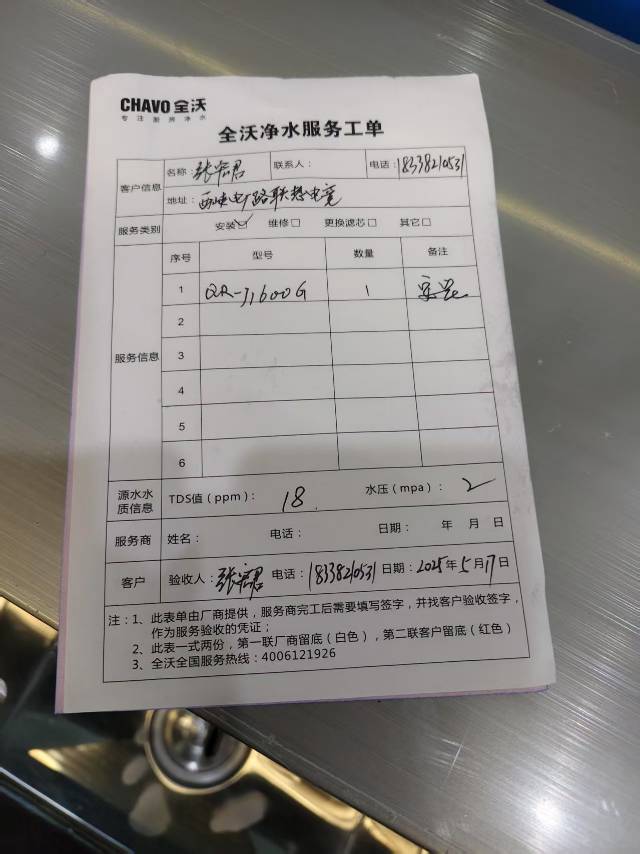 CHAVO 全沃
专注厨房净水
全沃净水服务工单
客户信息 名称：张 君 联系人： 电话：18338210531
地址：西 电厂路联想电竞
服务类别 安装☑ 维修□ 更换滤芯□ 其它□
服务信息 序号 型号 数量 备注
1 QR-J1600G 1
2
3
4
5
6
源水水质信息 TDS值（ppm）： 18 水压（mpa）： 2
服务商 姓名： 电话： 日期： 年 月 日
客户 验收人：张 君 电话：18338210531 日期：2025年5月17日
注：1、此表单由厂商提供，服务商完工后需要填写签字，并找客户验收签字，
作为服务验收的凭证；
2、此表一式两份，第一联厂商留底（白色），第二联客户留底（红色）
3、全沃全国服务热线：4006121926